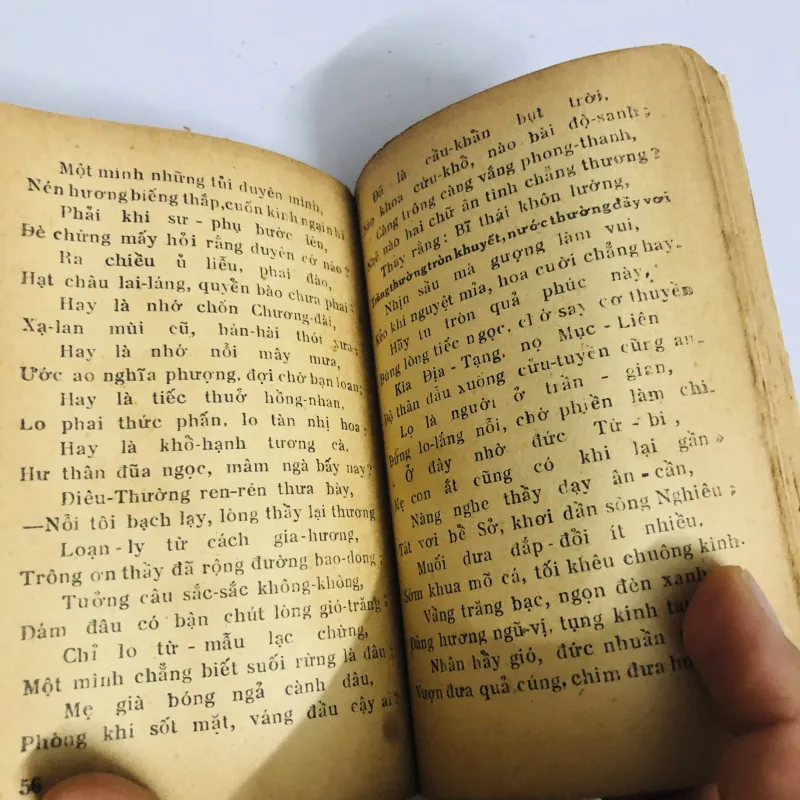 Một mình những tủi duyên mình,
Nén hương biếng thắp, cuốn kinh ngại
Phải khi sư - phụ bước lên,
Đè chừng mấy hỏi rằng duyên cớ nào?
Ra chiều ủ liễu, phai đào,
Hạt châu lai-láng, quyền bào chưa phai;
Hay là nhớ chốn Chương-đài,
Xạ-lan mùi cũ, hán-hài thói xưa;
Hay là nhớ nỗi mây mưa,
Ước ao nghĩa phượng, đợi chờ bạn loan;
Hay là tiếc thuở hồng-nhan,
Lo phai thức phấn, lo tàn nhị hoa;
Hay là khồ-hạnh tương cà,
Hư thân đũa ngọc, mâm ngà bấy nay?
Diệu-Thường ren-rén thưa bày,
—Nỗi tôi bạch lạy, lòng thầy lại thương
Loạn-ly từ cách gia-hương,
Trông ơn thầy đã rộng đường bao-dong;
Tưởng câu sắc-sắc không-không,
Dám đâu có bận chút lòng gió-trăng;
Chỉ lo từ - mẫu lạc chừng,
Một mình chẳng biết suối rừng là đâu;
Mẹ già bóng ngả cành dâu,
Phòng khi sốt mặt, váng đầu cậy ai?
56
Đã là cầu-khẩn bụt trời,
Nào khoa cứu-khồ, nào bài độ-sanh;
Càng trông càng vắng phong-thanh,
nào hai chữ ân tình chẳng thương?
Thầy rằng: Bĩ thái khôn lường,
Trăng thường tròn khuyết, nước thường đầy vơi
Nhịn sầu mà gượng làm vui,
Kẻo khi nguyệt mỉa, hoa cười chẳng hay.
Hãy tu tròn quả phúc này,
Đừng lòng tiếc ngọc, chớ say cơ thuyền
Kìa Địa - Tạng, nọ Mục - Liên
Độ thân dẫu xuống cửu-tuyền cũng an.
Lọ là người ở trần - gian,
Đừng lo-lắng nỗi, chớ phiền làm chi.
Ở đây nhờ đức Từ - bi,
Mẹ con ắt cũng có khi lại gần»
Nàng nghe thầy dạy ân - cần,
Tát vơi bề Sở, khơi dần sông Nghiêu;
Muối dưa đắp-đồi ít nhiều,
Sớm khua mõ cá, tối khêu chuông kình.
Vầng trăng bạc, ngọn đèn xanh
Dâng hương ngũ-vị, tụng kinh
Nhân bầy gió, đức nhuần
Vượn đưa quả cúng, chim đưa